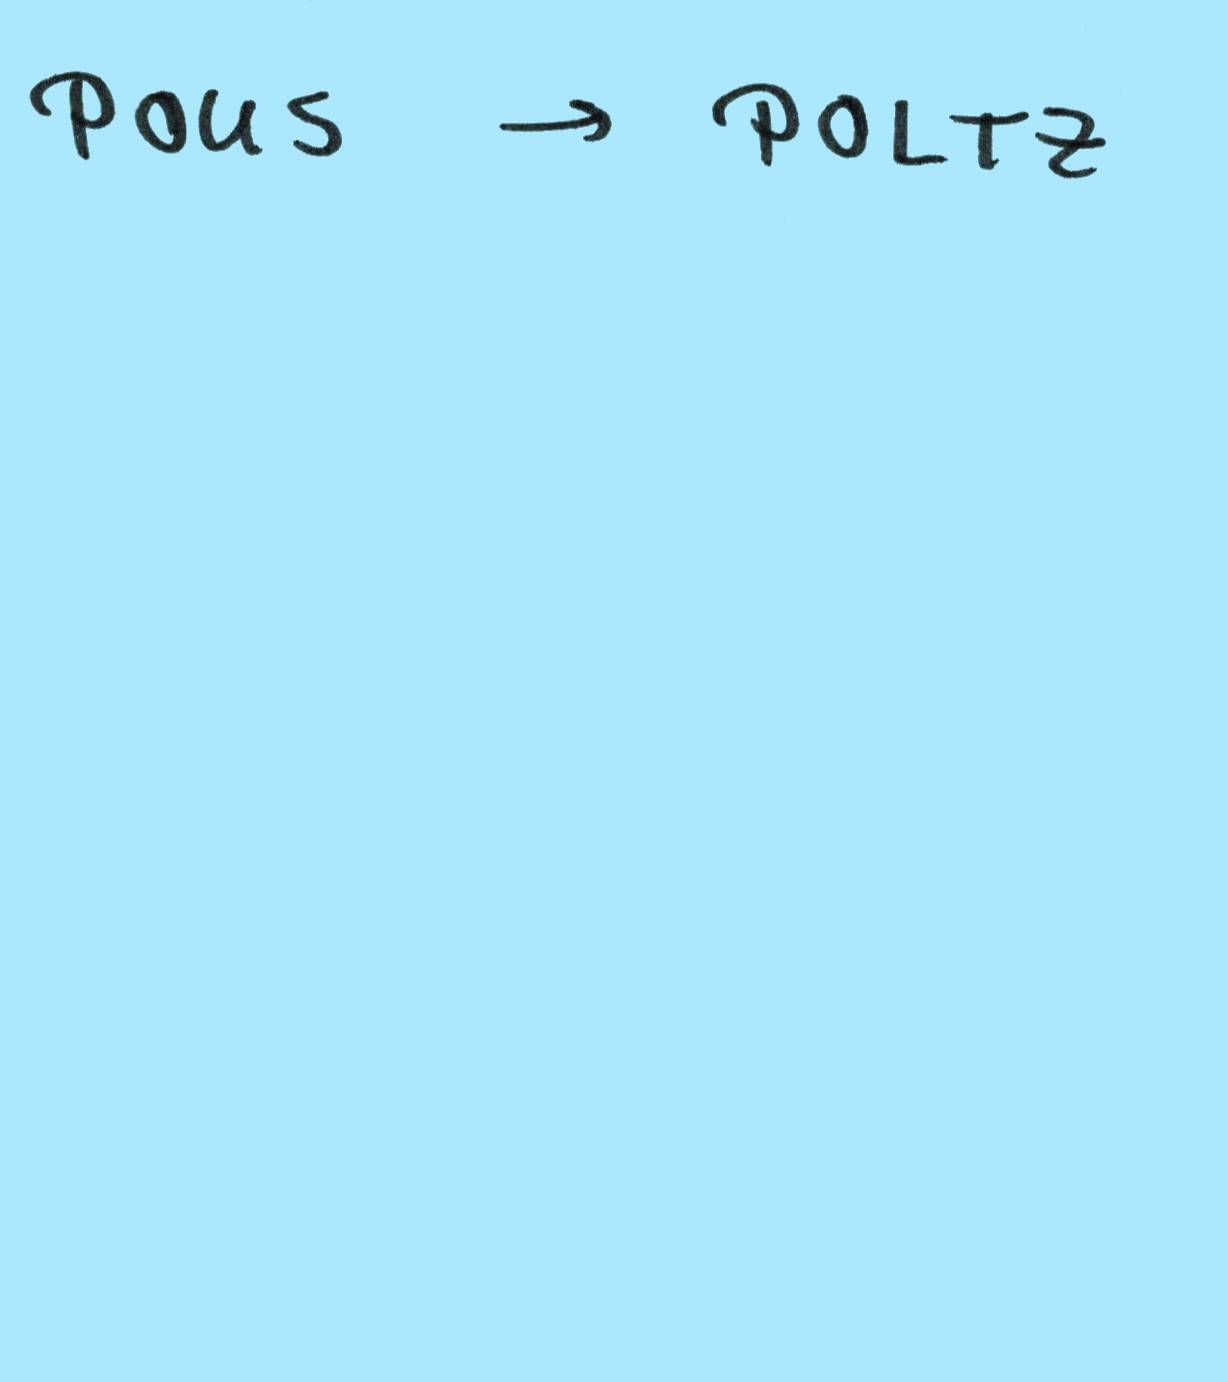 POUS → POLTZ